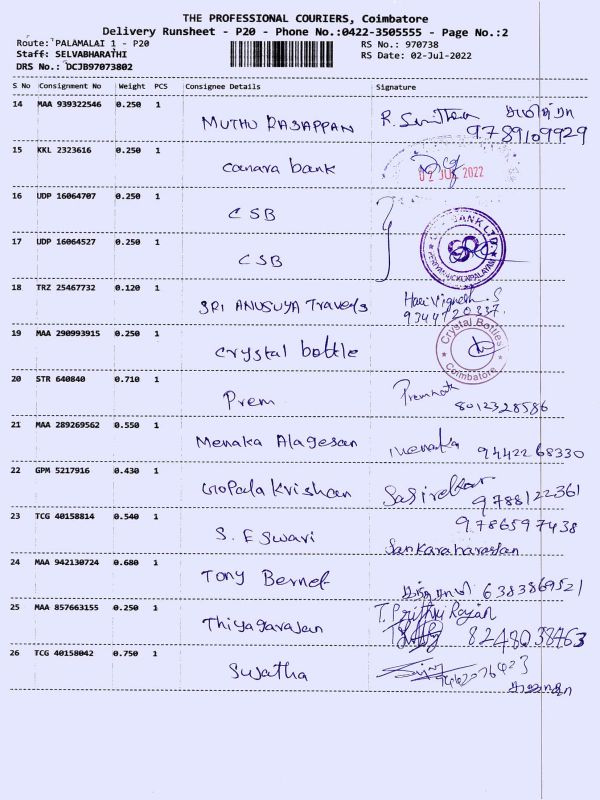 THE PROFESSIONAL COURIERS, Coimbatore
Delivery Runsheet - P20 - Phone No.:0422-3505555 - Page No.:2
Route: PALAMALAI 1 - P20 RS No.: 970738
Staff: SELVABHARATHI RS Date: 02-Jul-2022
DRS No.: DCJB97073802
S No Consignment No Weight PCS Consignee Details Signature
14 MAA 939322546 0.250 1 MUTHU RAJAPPAN R. 9789109929
15 KKL 2323616 0.250 1 canara bank 02 JUL 2022
16 UDP 16064707 0.250 1 CSB
17 UDP 16064527 0.250 1 CSB BANK LTD.
18 TRZ 25467732 0.120 1 SRI ANUSUYA Travels Hari Vignesh . S
9344720837.
19 MAA 290993915 0.250 1 crystal bottle Crystal Bottles Coimbatore
20 STR 640840 0.710 1 Prem
8012328586
21 MAA 289269562 0.550 1 Menaka Alagesan menaka 9442268330
22 GPM 5217916 0.430 1 Gopala Krishnan 9788122361
23 TCG 40158814 0.540 1 S. Eswari 9786597438
24 MAA 942130724 0.680 1 Tony Bernet 6383869521
25 MAA 857663155 0.250 1 Thiyagarajan T. Prithvi Rajan
8248038463
26 TCG 40158042 0.750 1 Sujatha